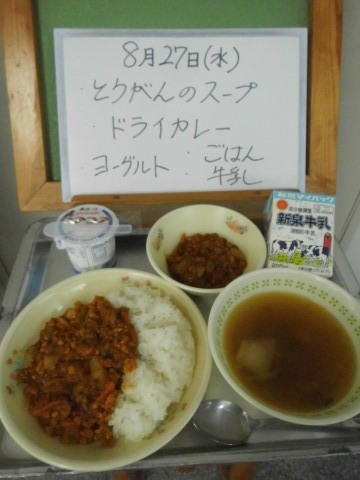 8月27日(水)
とうがんのスープ
ドライカレー
ヨーグルト・ごはん
牛乳
新泉牛乳